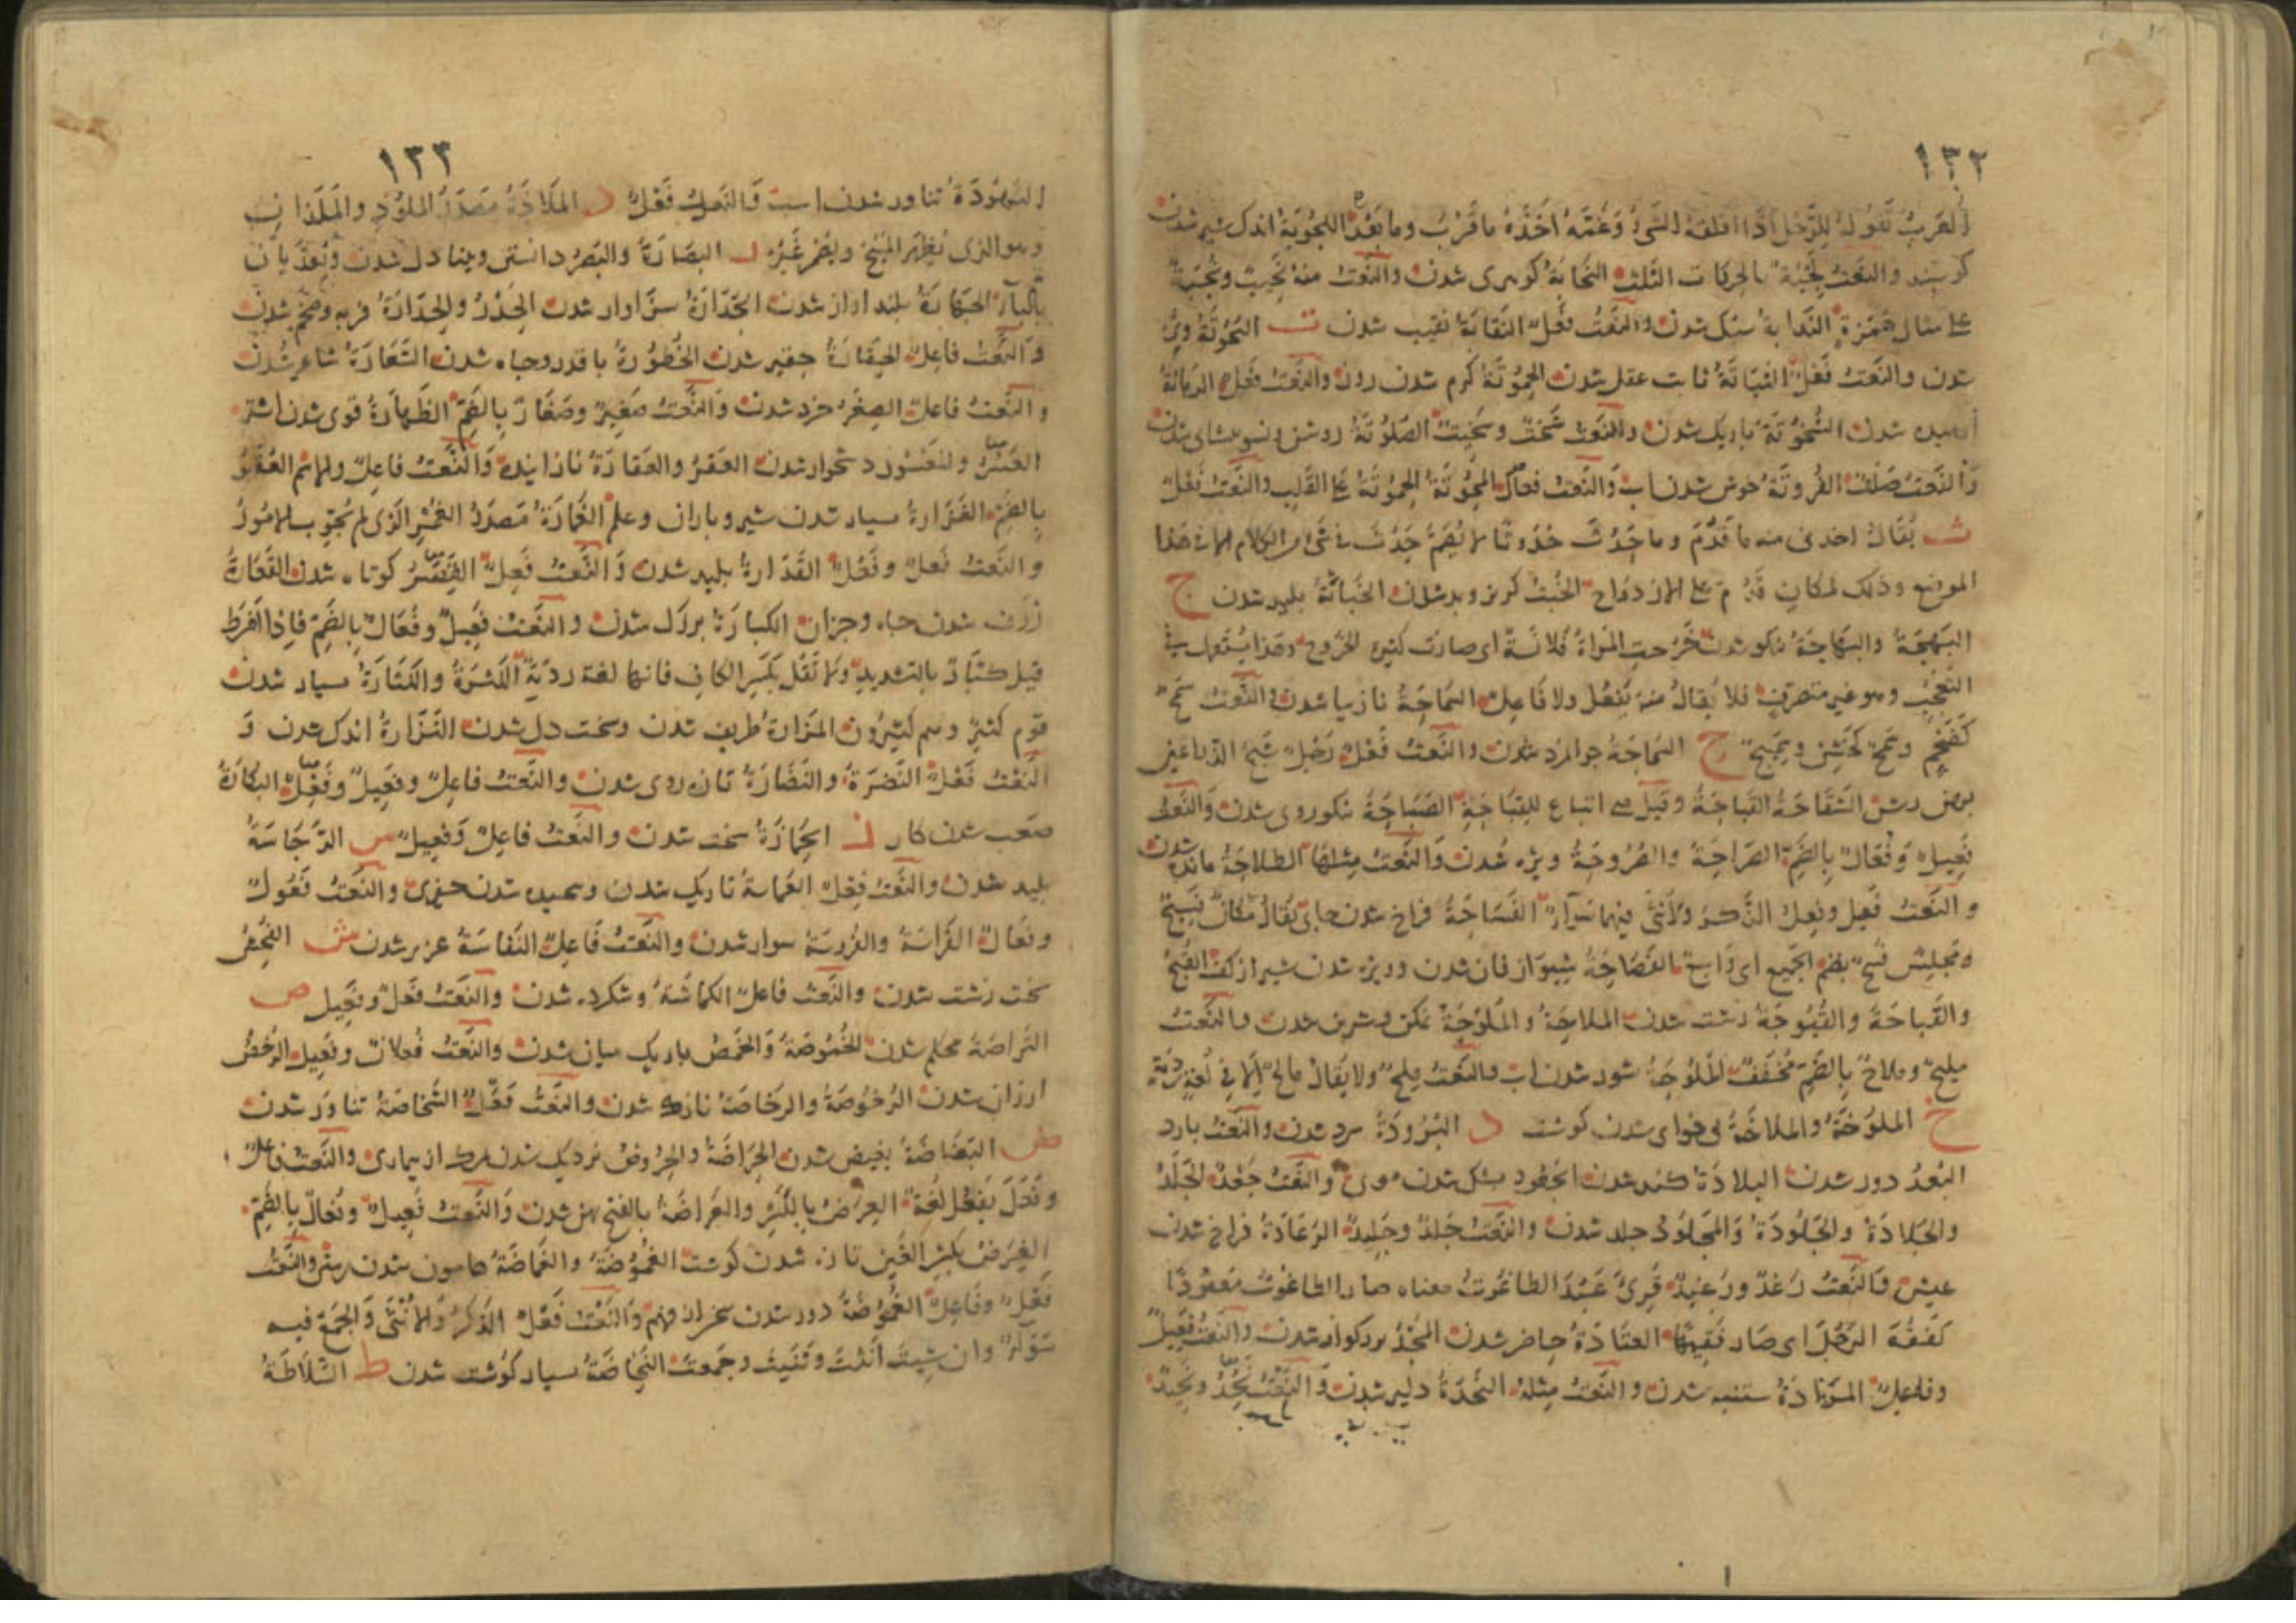 ١٣٢
القرب تقول للرجل اذا اقلقه الشىء وغمه اخذه ما قرب وما بعد اللجوبة اندك شير شدن
كوسپند والنعت لجبة بالحركات الثلث النجابة كوهرى شدن والنعت منه نجيب ونجبة
على مثال همزة الندابة سبك شدن والنعت فعل النقابة نقيب شدن ت
شدن والنعت فعل الثباتة ثابت عقل شدن الحموتة كرم شدن روز والنعت فعل الزماتة
ارميده شدن الشخوتة باريك شدن والنعت شخت وشخيت الصلوتة روشن و شدن
والنعت صلت الفروتة خوش شدن اب والنعت فعال الحموتة على القلب والنعت فعل
ث يقال اخذنى منه ما قدم وما حدث حدوثا لا يضم حدث فى شىء من الكلام الا فى هذا
الموضع وذلك لمكان قدم على الازدواج الخبث كربز وبد شدن الخباثة پليد شدن ج
البهجة والبهاجة نيكو شدن خرجت المراة فلانة اى صارت كثيرة الخروج وهذا يستعمل فى
التعجب وهو غير متصرف فلا يقال منه يفعل ولا فاعل السماجة نازيبا شدن والنعت سمج
كضخم وسمج كخشن وسميج ح السماحة جوامرد شدن والنعت فعل رجل
شدن الشقاحة القباحة وقيل هى اتباع للقباحة الصباحة نيكوروى شدن والنعت
فعيل وفعال بالضم الصراحة والصروحة ويژه شدن والنعت مثلها الطلاحة مانده شدن
والنعت فعل وفعيل الذكر والانثى فيهما سواء الفساحة فراخ شدن جاى يقال مكان فسيح
ومجلس فسح بضم الجميع اى واسع الفصاحة شيوازفان شدن وويژه شدن شير از كفك القبح
والقباحة والقبوحة زشت شدن الملاحة والملوحة نمكن و شيرين شدن والنعت
مليح وملاح بالضم مخفف الملوحة شور شدن اب والنعت ملح ولا يقال مالح الا فى لغة ردية
خ الملوخة والملاخة بى شدن كوشت د البرودة سرد شدن والنعت بارد
البعد دور شدن البلادة كند شدن الجعودة بشكل شدن موى والنعت جعد الجلد
والجلادة والجلودة والمجلود جلد شدن والنعت جلد وجليد الرغادة فراخ شدن
عيش والنعت رغد ورغيد قرئ عبد الطاغوت معناه صار الطاغوت معبودا
كفقه الرجل اى صار فقيها العتادة حاضر شدن المجد بزركوار شدن والنعت فعيل
وفاعل المرادة ستنبه شدن والنعت مثله النجدة دلير شدن والنعت نجد ونجيد
١٣٣
النهودة تناور شدن اسب والنعت فعل ذ الملاذة مصدر الملوذ والملذانى
وهو الذى يظهر النصح ويضمر غيره ر البصارة والبصر دانستن وبينا دل شدن وتعديان
بالباء الجهارة بلند اواز شدن الجدارة سزاوار شدن الحدر والحدارة فربه وضخم شدن
والنعت فاعل الحقارة حقير شدن الخطورة با قدر وجاه شدن الشعارة شاعر شدن
والنعت فاعل الصغر خرد شدن والنعت صغير وصغار بالضم الظهارة قوى شدن اشتر
العسر والمعسور دشخوار شدن العقر والعقارة نازاينده والنعت فاعل والاسم العقر
بالضم الغزارة بسيار شدن شير وباران وعلم الغمارة مصدر الغمر الذى لم يجرب الامور
والنعت فعل وفعل القذارة پليد شدن والنعت فعل القصر كوتاه شدن القعارة
ژرف شدن چاه وجز ان الكبارة بزرك شدن والنعت فعيل وفعال بالضم فاذا افرط
قيل كبار بالتشديد ولا تقل بكسر الكاف فانها لغة ردية الكثرة والكثارة بسيار شدن
قوم كثير وهم كثيرون المزارة ظريف شدن وسخت دل شدن النزارة اندك شدن و
النعت فعل النضرة والنضارة تازه روى شدن والنعت فاعل وفعيل وفعل النكارة
صعب شدن كار ز الحمازة سخت شدن والنعت فاعل وفعيل س الرجاسة
پليد شدن والنعت فعل الغماسة تاريك شدن و شدن والنعت فعول
وفعال الفراسة والفروسة سوار شدن والنعت فاعل النفاسة عزيز شدن ش الفحش
سخت زشت شدن والنعت فاعل الكماشة وشكرده شدن والنعت فعل وفعيل ص
التراصة محكم شدن الخموصة والخمص باريك ميان شدن والنعت فعلان وفعيل الرخص
ارزان شدن الرخوصة والرخاصة نازك شدن والنعت فعل الشخاصة تناور شدن
ض البغاضة بغيض شدن الحراضة والحروض نزديك شدن بمرك از بيمارى والنعت فاعل
وفعل يفعل لغة العرض بالكسر والعراضة بالفتح پهن شدن والنعت فعيل وفعال بالضم
الغرض بكسر الغين تازه شدن كوشت الغموضة والغماضة هامون شدن زمين والنعت
فعل وفاعل الغموضة دور شدن سخن از فهم والنعت فعل الذكر والانثى والجمع فيه
سواء وان شيت انثت وثنيت وجمعت النحاضة بسيار كوشت شدن ط السلاطة